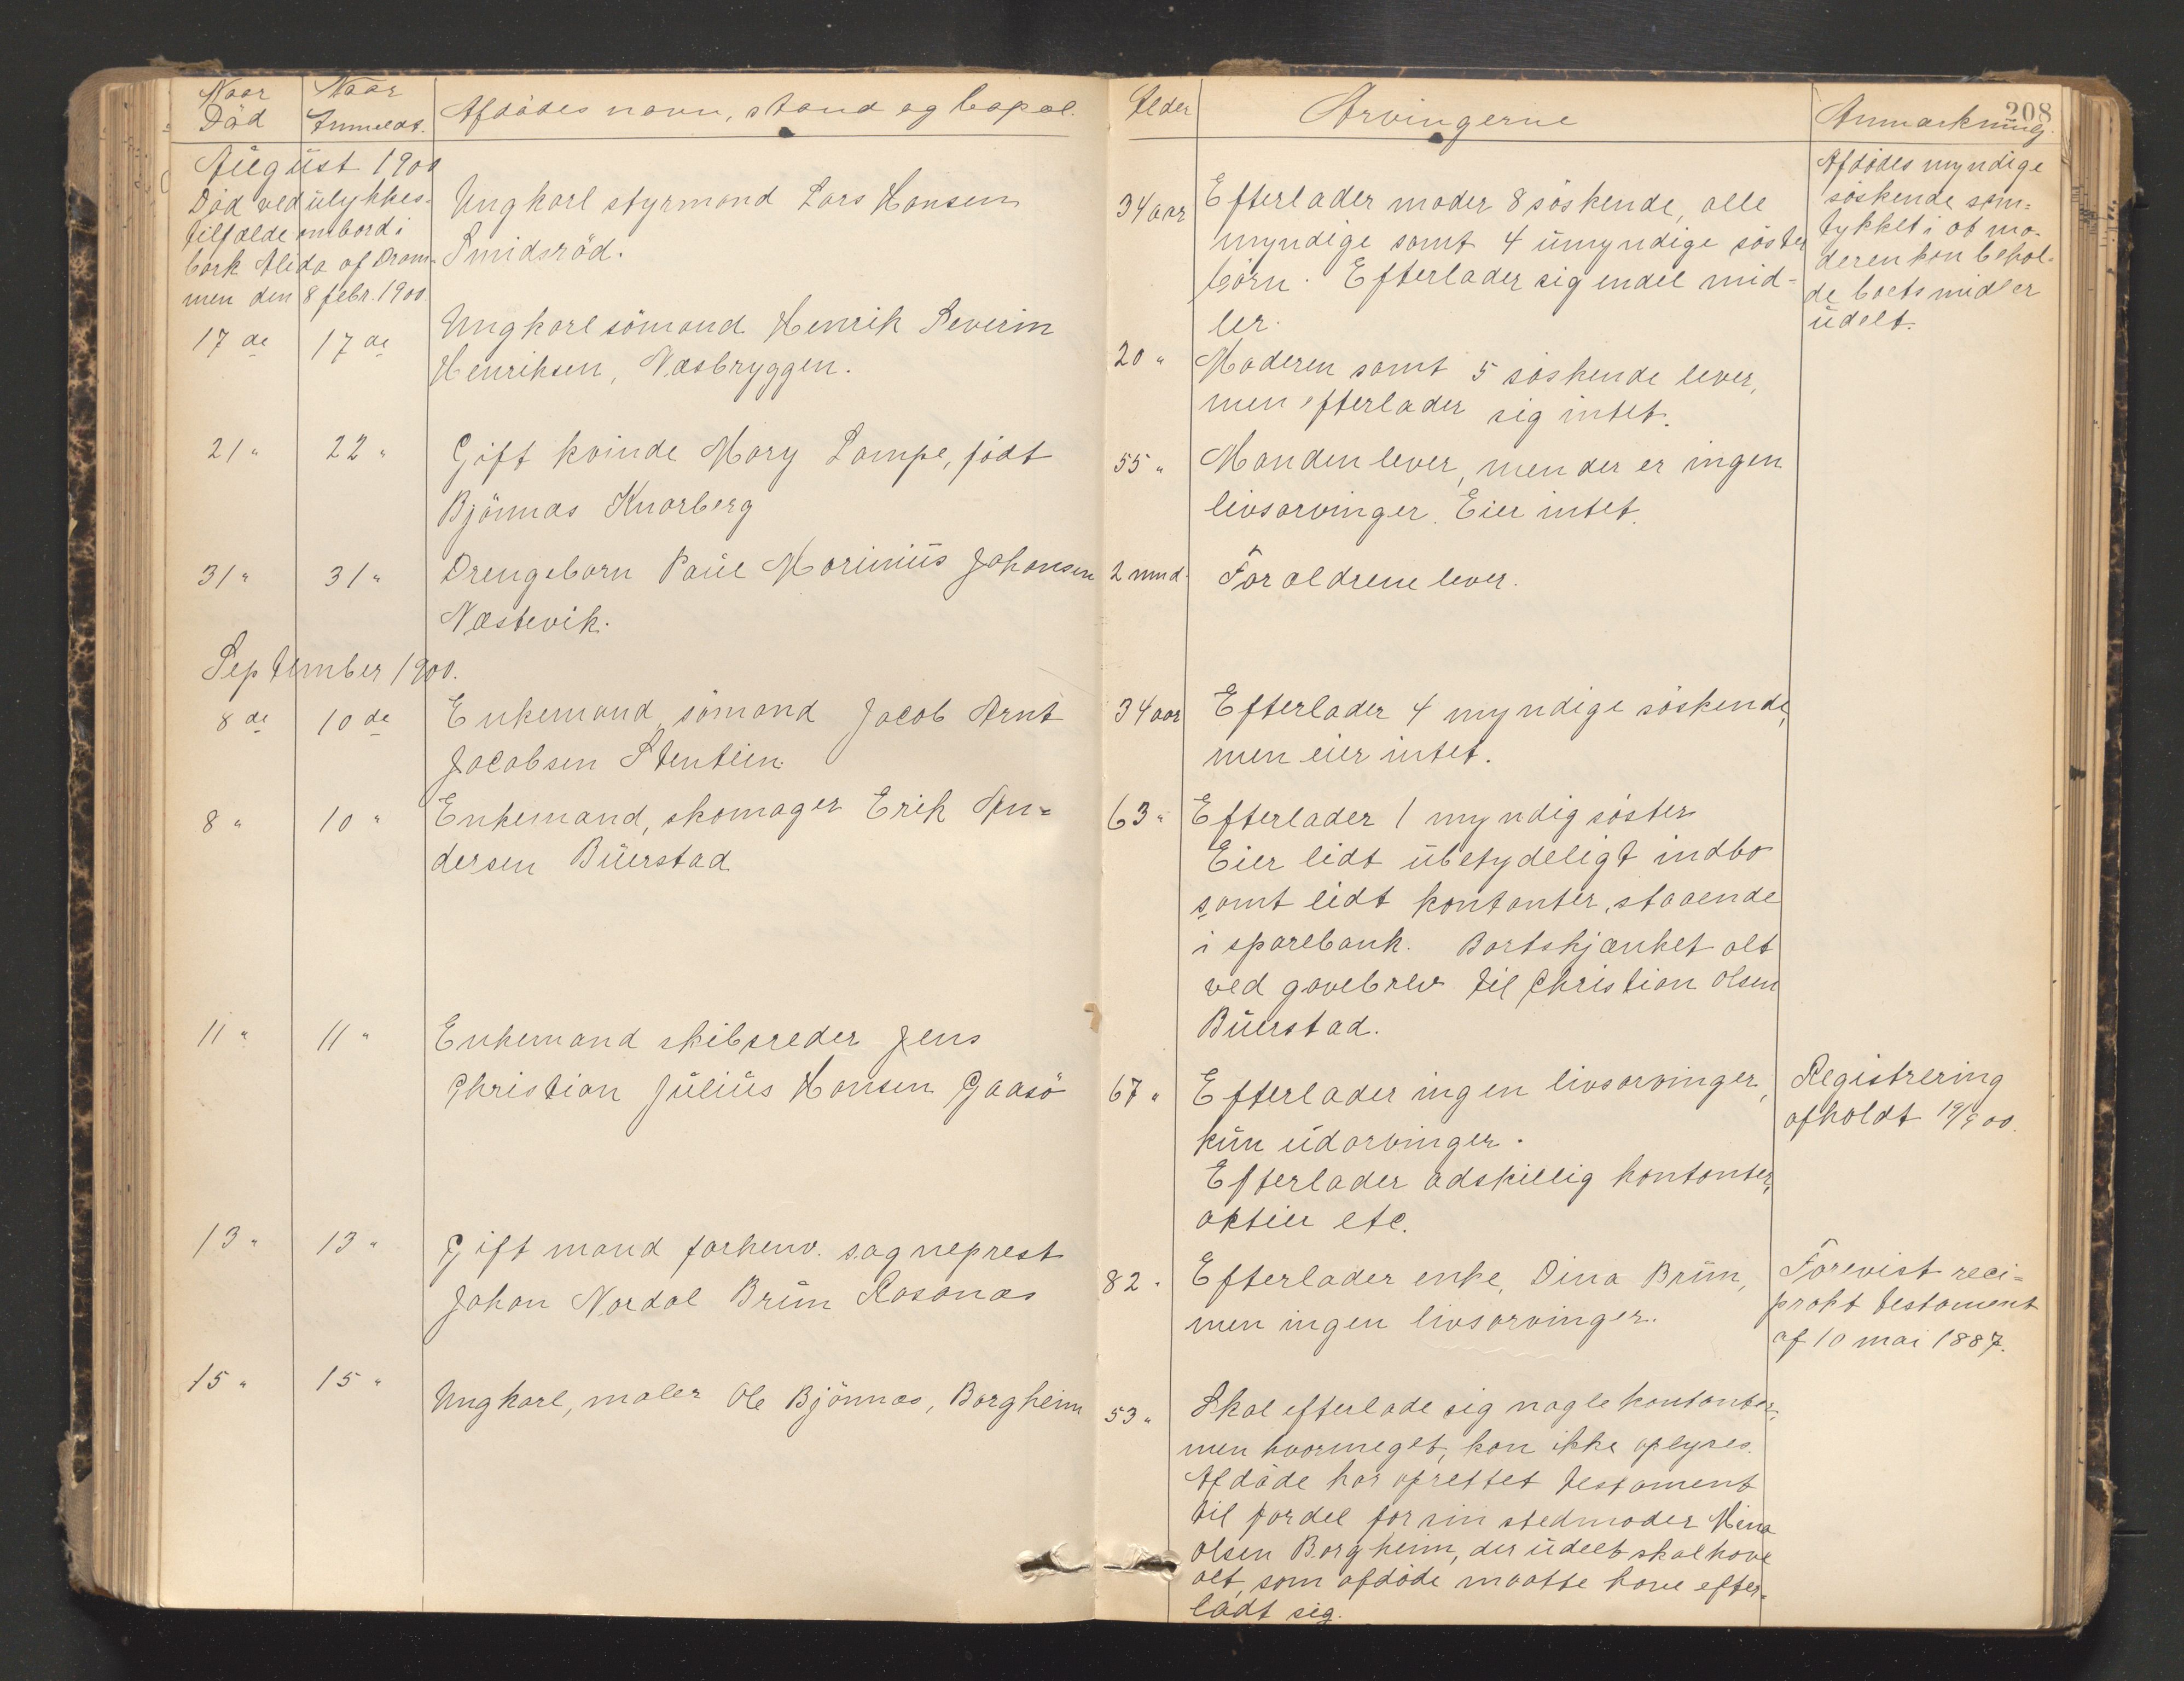 Naar Død
Naar Anmeldt.
Afdødes navn, stand og bopæl.
Alder
Arvingerne
Anmærkning.
208
August 1900
Død ved ulykkes-
tilfælde ombord i
bark Alida af Dram-
men den 8 febr. 1900.
Ungkarl styrmand Lars Hansen
Smidsrød.
34 aar
Efterlader moder 8 søskende, alle
myndige samt 4 umyndige søster
børn. Efterlader sig endel mid-
ler.
Afdødes myndige
søskende sam=
tykket i at mo-
deren kan behol-
de boets midler
udelt.
17 de
17 de
Ungkarl sømand Henrik Severin
Henriksen, Næsbryggen.
20 "
Moderen samt 5 søskende lever,
men efterlader sig intet.
21 "
22 "
Gift kvinde Mary Lampe, født
Bjønnæs Knarberg
55 "
Manden lever, men der er ingen
livsarvinger. Eier intet.
31 "
31 "
Drengebarn Paul Marinius Johansen
Næstevik.
2 mnd.
Forældrene lever.
September 1900.
8 de
10 de
Enkemand, sømand Jacob Arnt
Jacobsen Stentein
34 aar
Efterlader 4 myndige søskende,
men eier intet.
8 "
10 "
Enkemand, skomager Erik An=
dersen Buerstad
63 "
Efterlader 1 myndig søster
Eier lidt ubetydeligt indbo
samt lidt kontanter, staaende
i sparebank. Bortskjænket alt
ved gavebrev til Christian Olsen
Buerstad.
11 "
11 "
Enkemand skibsreder Jens
Christian Julius Hansen Gaasø
67 "
Efterlader ingen livsarvinger,
kun udarvinger.
Efterlader adskillig kontanter,
aktier etc.
Registrering
afholdt 19/9 00.
13 "
13 "
Gift mand forhenv. sogneprest
Johan Nordal Brun Rosanes
82 "
Efterlader enke, Dina Brun,
men ingen livsarvinger.
Forevist reci=
prokt testament
af 10 mai 1887.
15 "
15 "
Ungkarl, maler Ole Bjønnæs, Borgheim
53 "
Skal efterlade sig nogle kontanter,
men hvormeget, kan ikke oplyses.
Afdøde har oprettet testament
til fordel for sin stedmoder Mina
Olsen Borgheim, der udelt skal have
alt, som afdøde maatte have efter-
ladt sig.